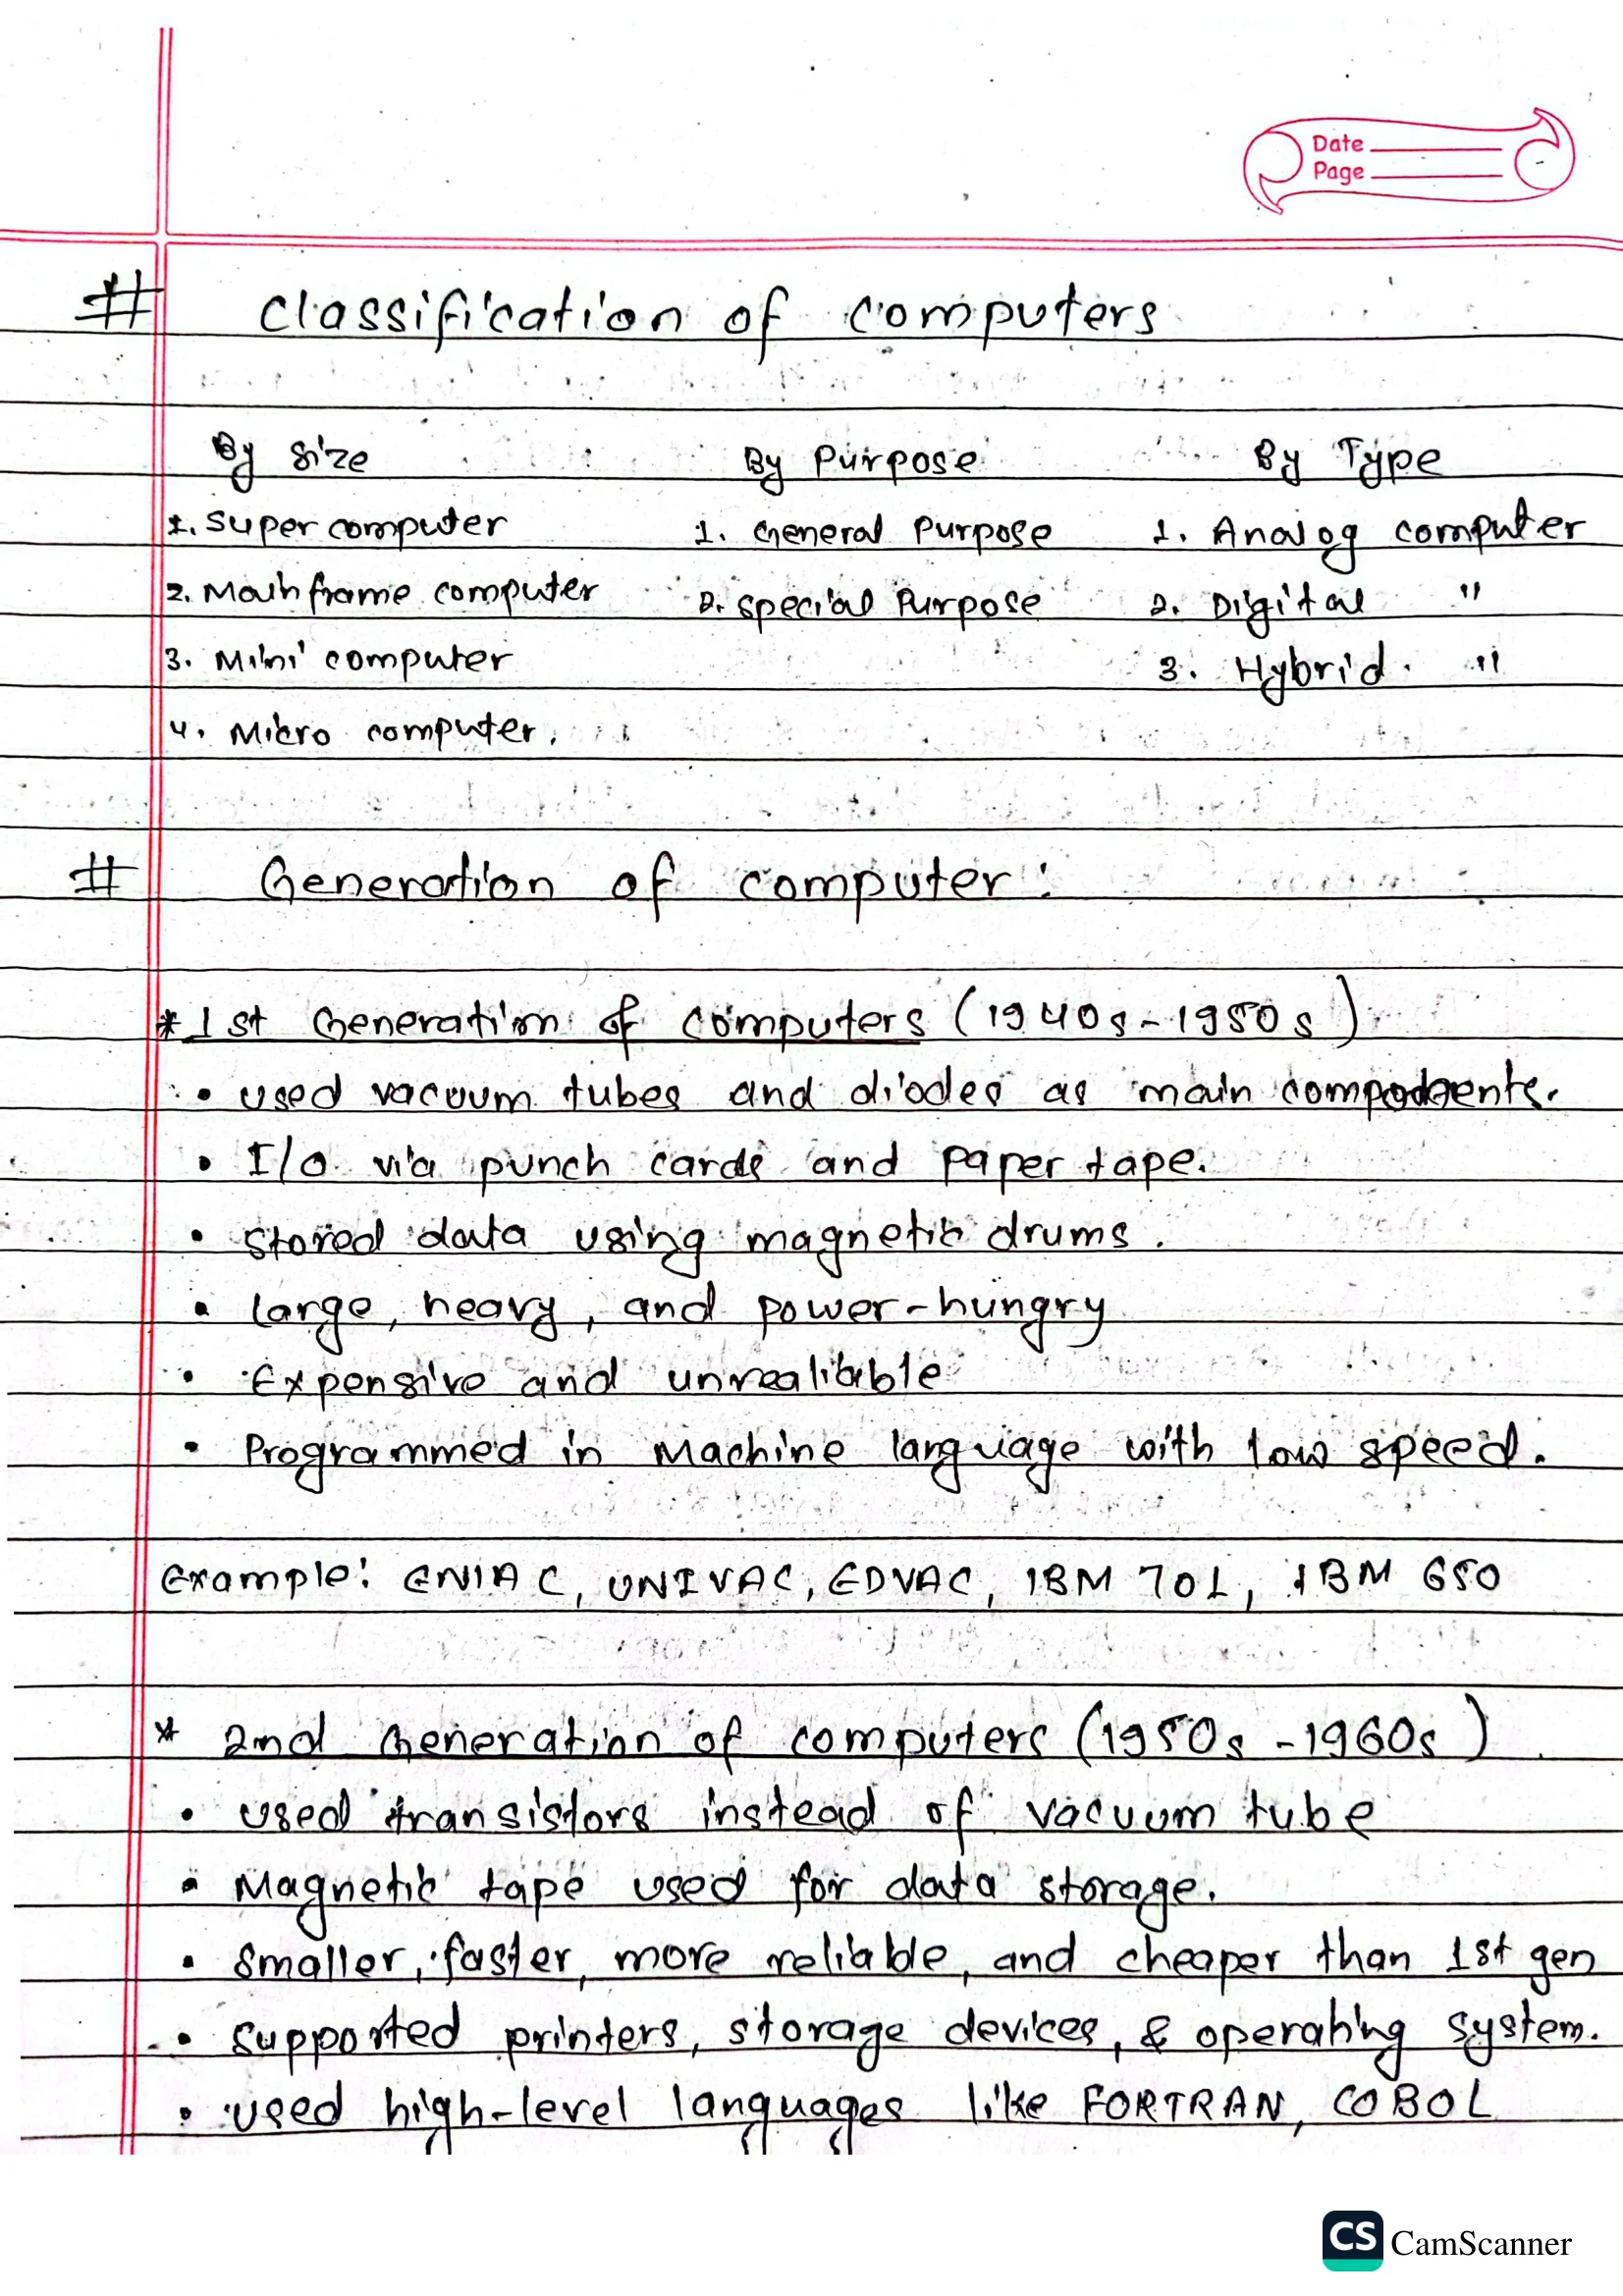 Date
Page
# Classification of computers
By Size By Purpose By Type
1. Super computer 1. General Purpose 1. Analog computer
2. Mainframe computer 2. Special Purpose 2. Digital "
3. Mini computer 3. Hybrid. "
4. Micro computer.
# Generation of computer:
* 1st Generation of computers (1940s-1950s)
• used vacuum tubes and diodes as main components.
• I/O via punch cards and paper tape.
• stored data using magnetic drums.
• large, heavy, and power-hungry
• Expensive and unrealiable
• Programmed in Machine language with low speed.
Example: ENIAC, UNIVAC, EDVAC, IBM 701, IBM 650
* 2nd Generation of computers (1950s-1960s)
• used transistors instead of vacuum tube
• Magnetic tape used for data storage.
• Smaller, faster, more reliable, and cheaper than 1st gen
• supported printers, storage devices, & operating system.
• used high-level languages like FORTRAN, COBOL
CS CamScanner